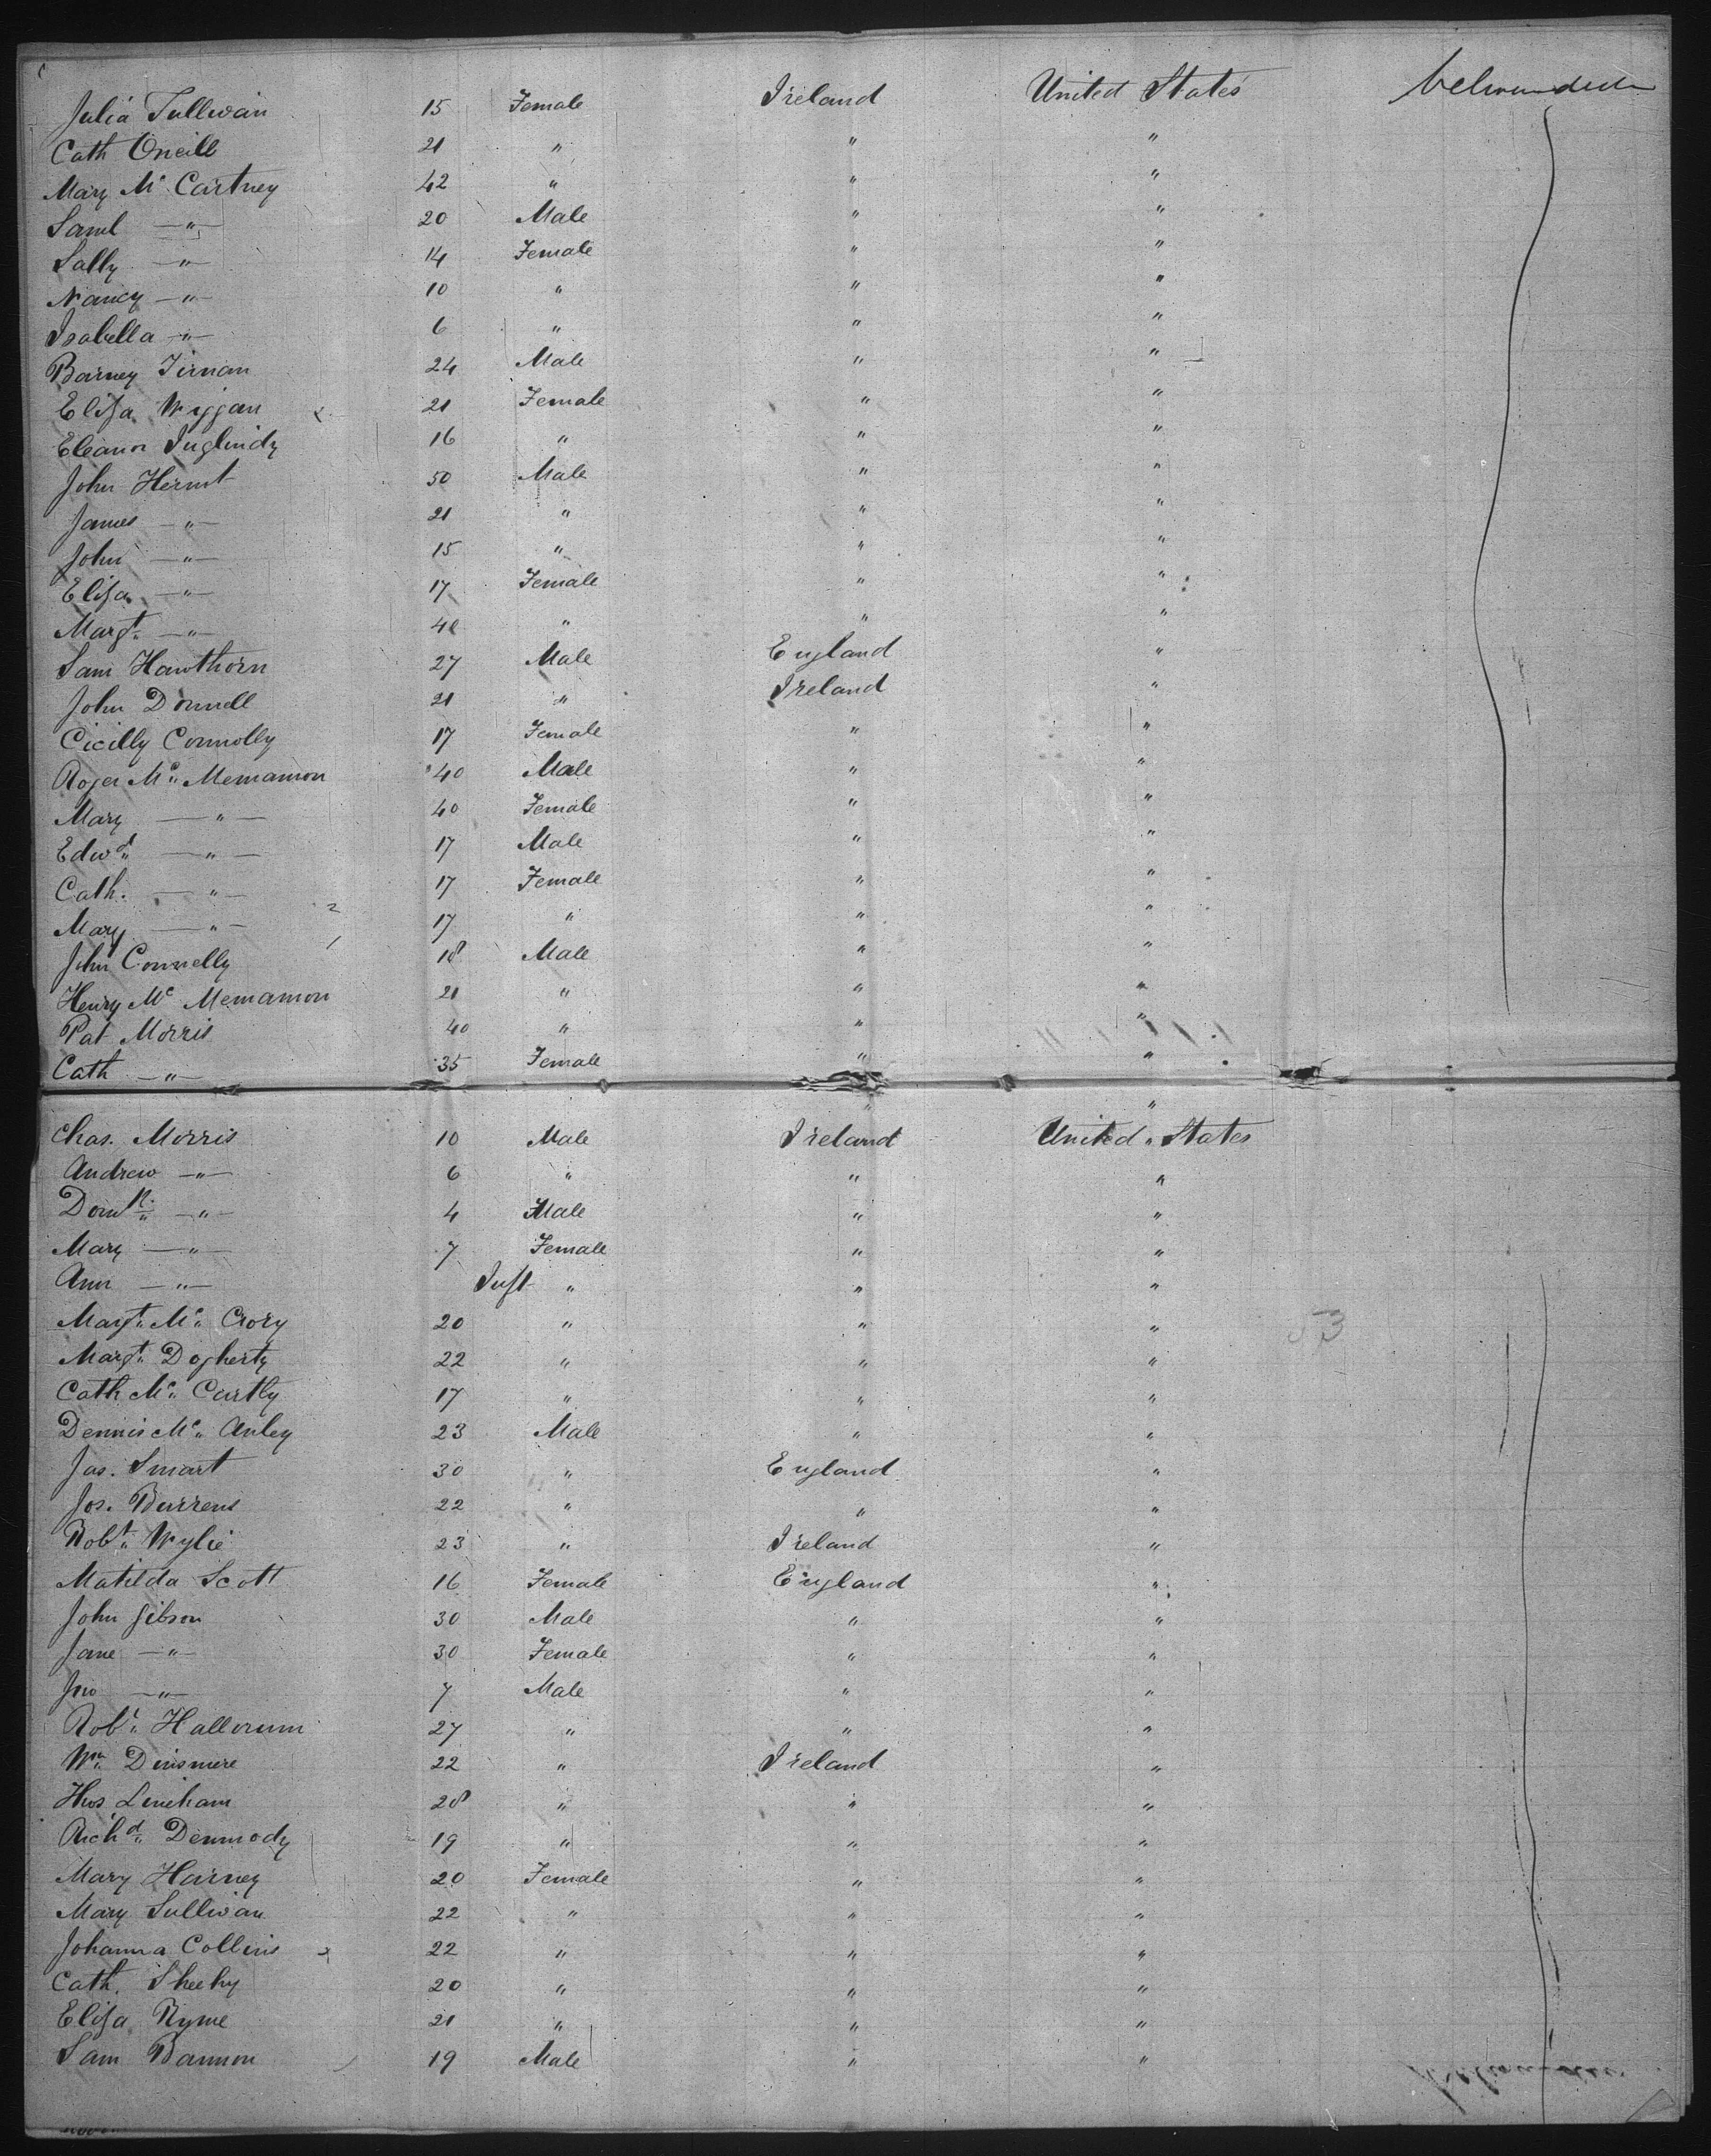 Julia Sullivan 15 Female Ireland United States
Cath Oneill 21 " " "
Mary Mc Cartney 42 " " "
Saml —"— 20 Male " "
Sally —"— 14 Female " "
Nancy —"— 10 " " "
Isabella —"— 6 " " "
Barney Tirnan 24 Male " "
Eliza 21 Female " "
Eleanor 16 " " "
John 50 Male " "
James —"— 21 " " "
John —"— 15 " " "
Eliza —"— 17 Female " "
Margt. —"— " " "
Sam Hawthorn 27 Male England "
John Donnell 21 " Ireland "
Cicilly Connolly 17 Female " "
Roger Mc Memamon 40 Male " "
Mary —"— 40 Female " "
Edwd. —"— 17 Male " "
Cath. —"— 17 Female " "
Mary —"— 17 " " "
John Connelly 18 Male " "
Henry Mc Memamon 21 " " "
Pat Morris 40 " " "
Cath —"— 35 Female " "
" "
Chas. Morris 10 Male Ireland United States
Andrew —"— 6 " " "
Domk. —"— 4 Male " "
Mary —"— 7 Female " "
Ann —"— Inft " " "
Margt. Mc Crory 20 " " "
Margt. Dogherty 22 " " "
Cath Mc Cartly 17 " " "
Dennis Mc Auley 23 Male " "
Jas. Smart 30 " England "
Jos. Burrens 22 " " "
Robt. Wylie 23 " Ireland "
Matilda Scott 16 Female England "
John Gibson 30 Male " "
Jane —"— 30 Female " "
Jno —"— 7 Male " "
Robt. Hallorum 27 " " "
Wm. Dinsmere 22 " Ireland "
Lineham 28 " " "
Richd. Denmody 19 " " "
Mary Harney 20 Female " "
Mary Sullivan 22 " " "
Johanna Collins 22 " " "
Cath. Sheehy 20 " " "
Eliza Ryme 21 " " "
Sam Bannon 19 Male " "